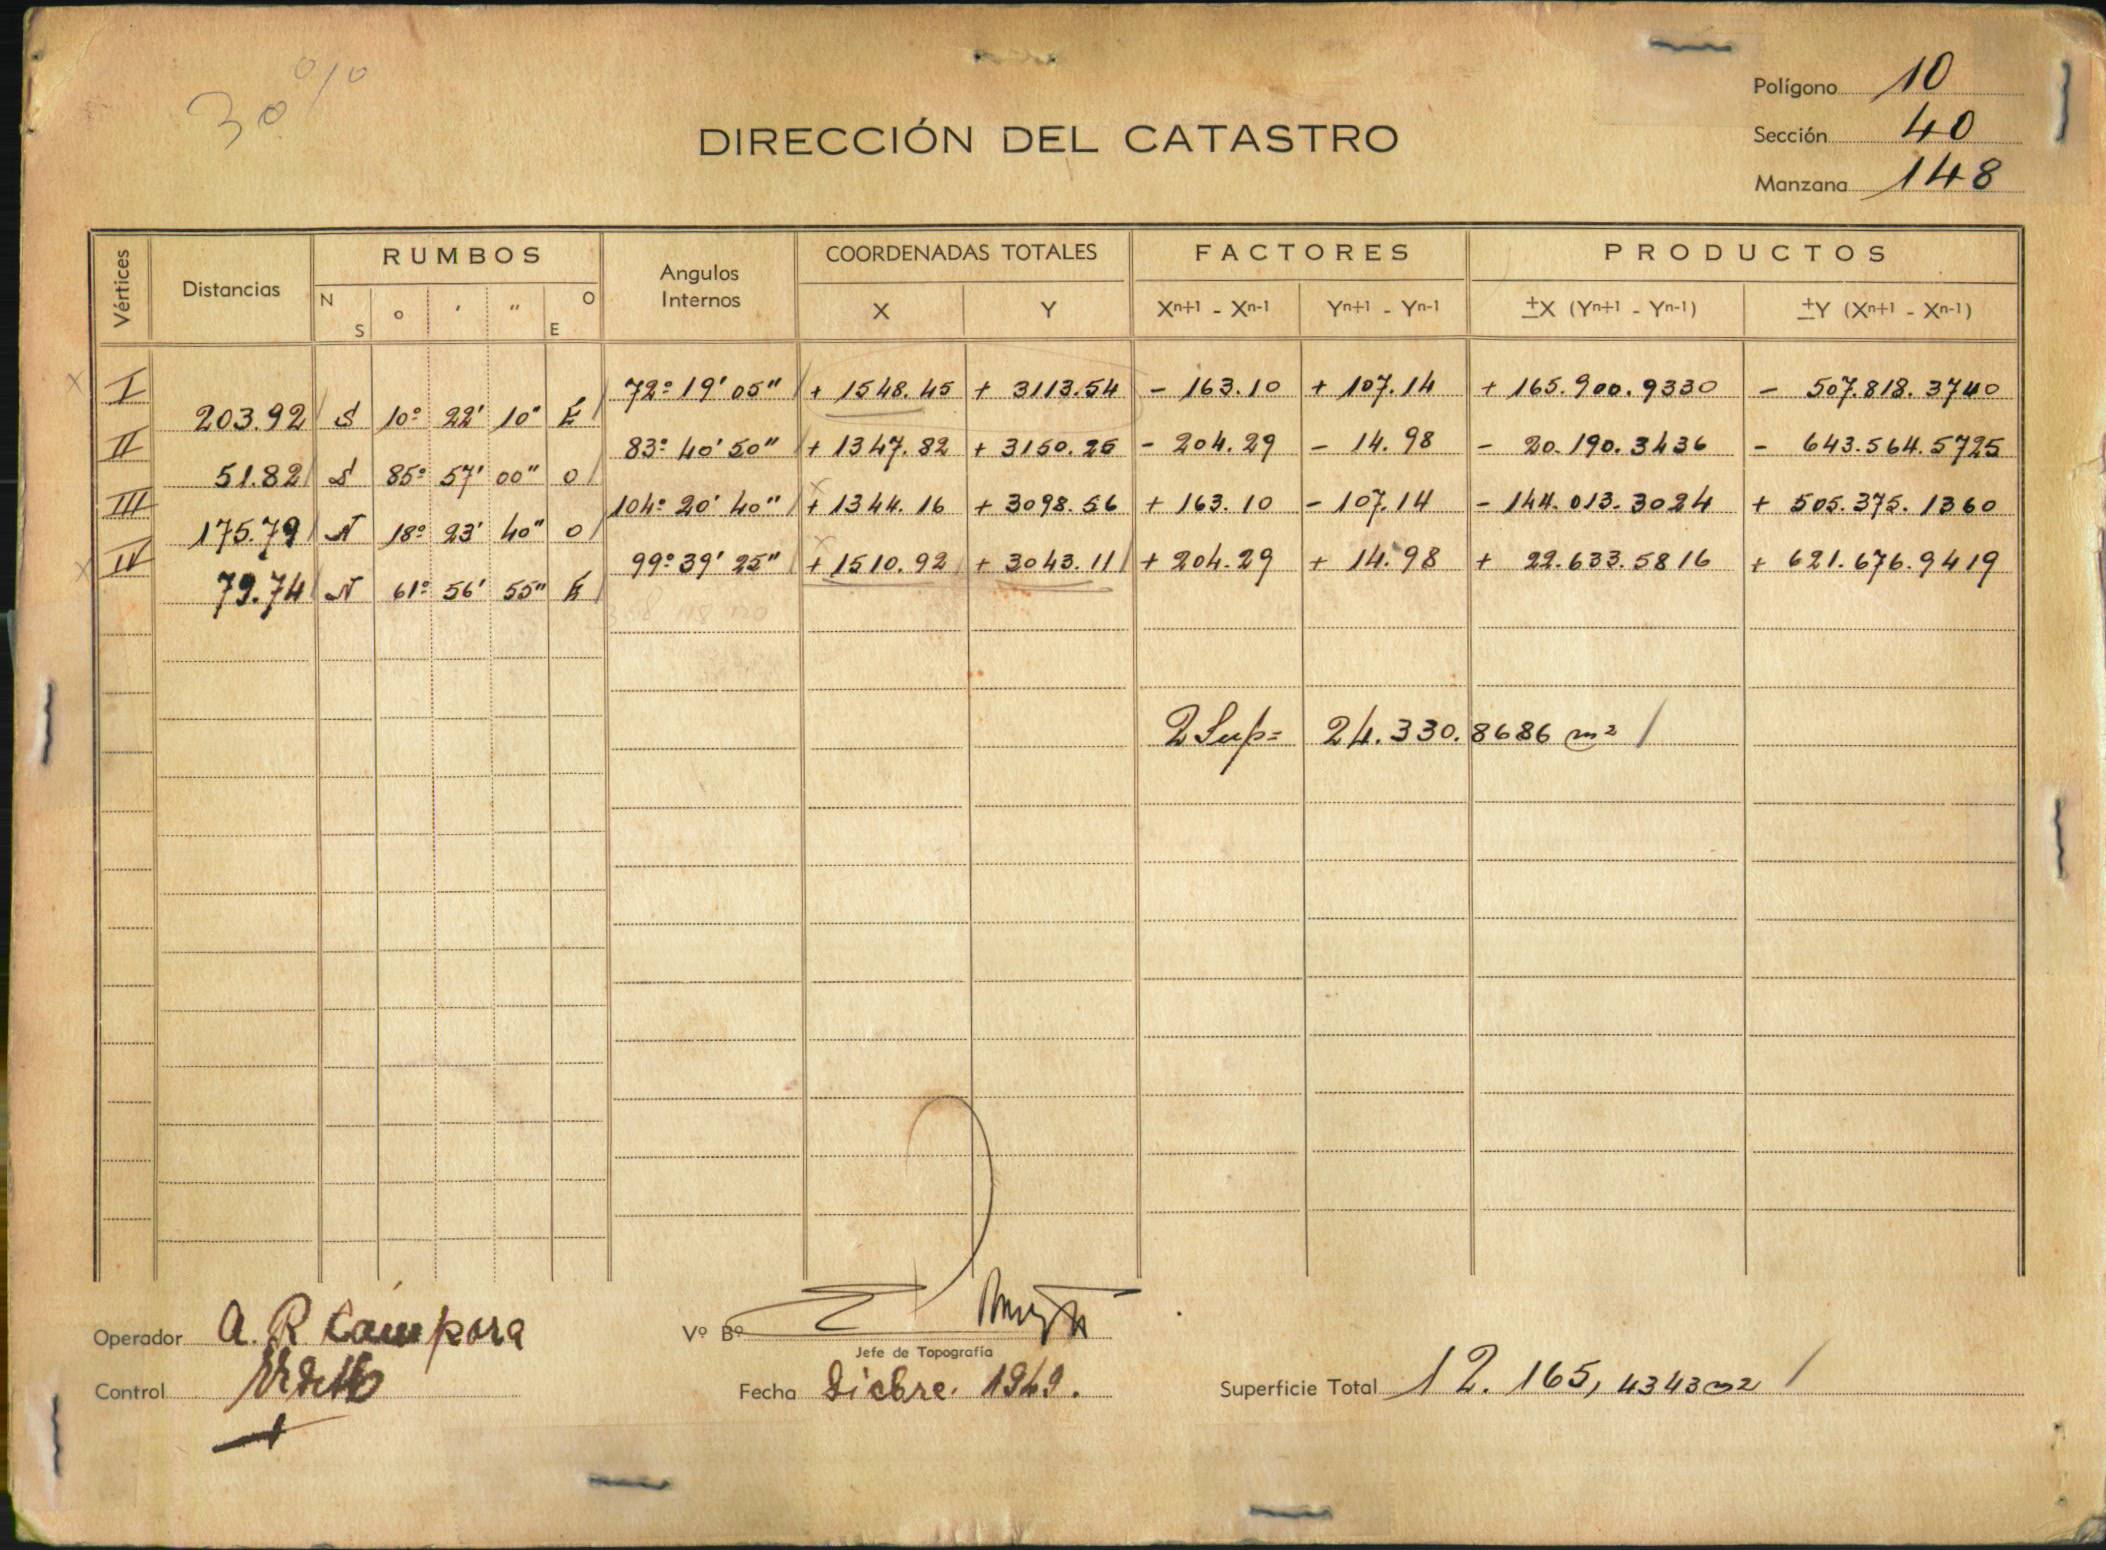 30 %
Polígono 10
DIRECCIÓN DEL CATASTRO
Sección 40
Manzana 148
Vértices Distancias RUMBOS Angulos Internos COORDENADAS TOTALES FACTORES PRODUCTOS
N S o ' " E O X Y Xn+1 - Xn-1 Yn+1 - Yn-1 ±X (Yn+1 - Yn-1) ±Y (Xn+1 - Xn-1)
I 72º 19' 05" + 1548.45 + 3113.54 - 163.10 + 107.14 + 165.900.9330 - 507.818.3740
203.92 S 10º 22' 10" E
II 83º 40' 50" + 1347.82 + 3150.25 - 204.29 - 14.98 - 20.190.3436 - 643.564.5725
51.82 S 85º 57' 00" O
III 104º 20' 40" + 1344.16 + 3098.56 + 163.10 - 107.14 - 144.013.3024 + 505.375.1360
175.79 N 18º 23' 40" O
IV 99º 39' 25" + 1510.92 + 3043.11 + 204.29 + 14.98 + 22.633.5816 + 621.676.9419
79.74 N 61º 56' 55" E
2 Sup= 24.330.8686 m²
Operador A. R. Cámpora
Vº Bº
Jefe de Topografía
Control
Fecha Dicbre. 1949.
Superficie Total 12.165,4343 m2